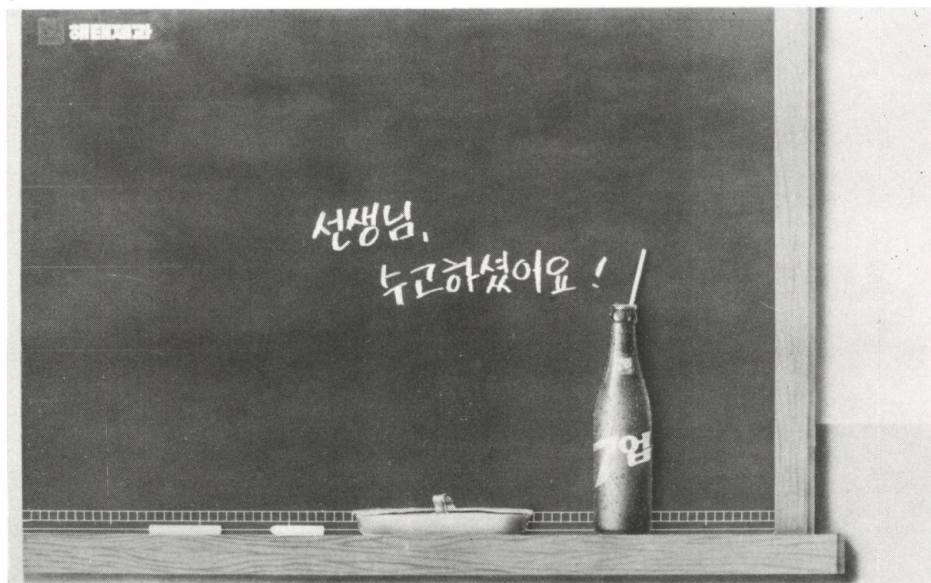 해태제과
선생님,
수고하셨어요!
7업